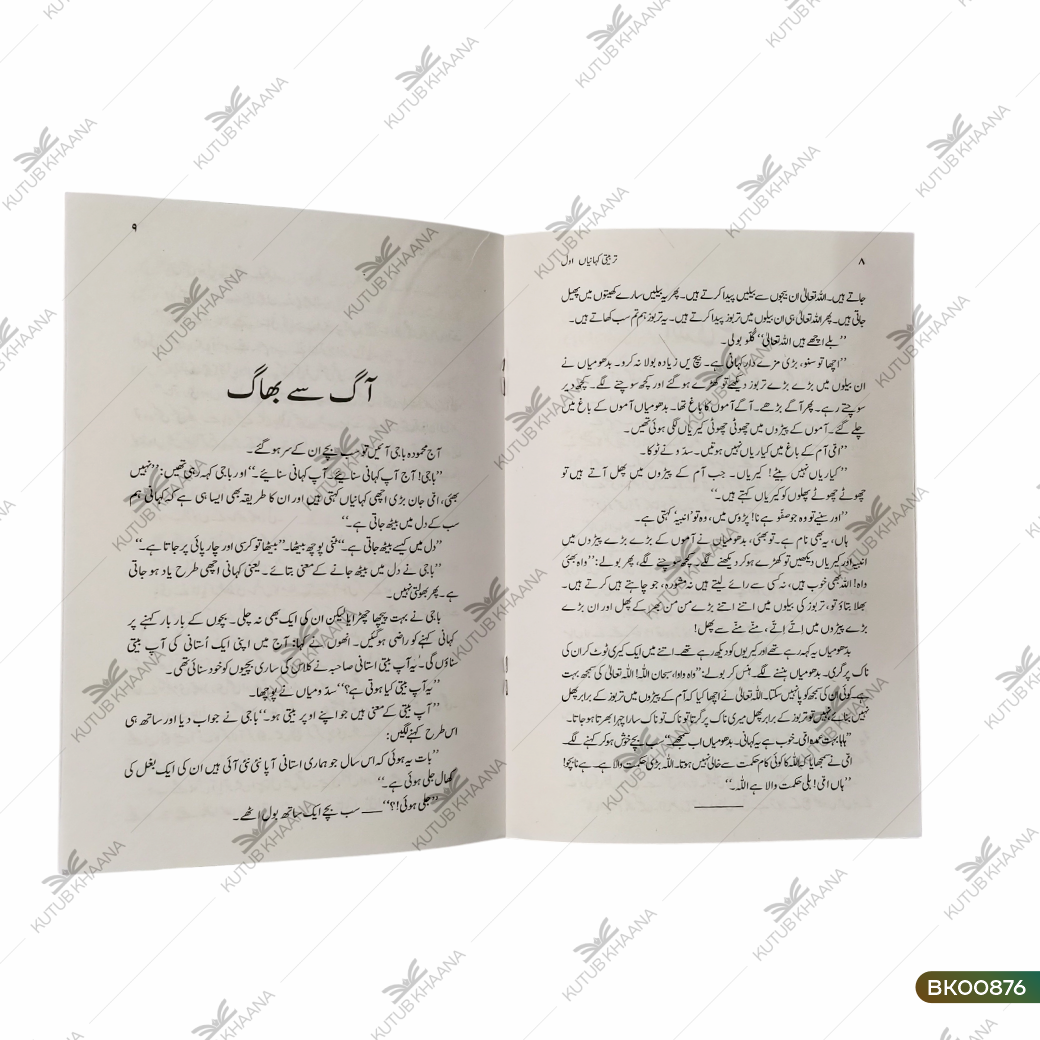 ۸
تربیتی کہانیاں اول
جاتے ہیں۔ اللہ تعالیٰ ان بیجوں سے بیلیں پیدا کرتے ہیں۔ پھر یہ بیلیں سارے کھیتوں میں پھیل
جاتی ہیں۔ پھر اللہ تعالیٰ ہی ان بیلوں میں تربوز پیدا کرتے ہیں۔ یہ تربوز ہم تم سب کھاتے ہیں۔
’’بلے اچھے ہیں اللہ تعالیٰ‘‘ گلو بولی۔
’’اچھا تو سنو، بڑی مزے دار کہانی ہے۔ بیچ میں زیادہ بولا نہ کرو۔ بدھو میاں نے
ان بیلوں میں بڑے بڑے تربوز دیکھے تو کھڑے ہو گئے اور کچھ سوچنے لگے۔ کچھ دیر
سوچتے رہے۔ پھر آگے بڑھے۔ آگے آموں کا باغ تھا۔ بدھو میاں آموں کے باغ میں
چلے گئے۔ آموں کے پیڑوں میں چھوٹی چھوٹی کیریاں لگی ہوئی تھیں۔
’’امی آم کے باغ میں کیاریاں نہیں ہوتیں۔ سدّو نے ٹوکا۔
’’کیاریاں نہیں بیٹے! کیریاں۔ جب آم کے پیڑوں میں پھل آتے ہیں تو
چھوٹے چھوٹے پھلوں کو کیریاں کہتے ہیں۔‘‘
’’اور سنیے تو وہ جو صفّو ہے نا! پڑوس میں، وہ تو ’انبیہ‘ کہتی ہے۔
ہاں، یہ بھی نام ہے۔ تو بھئی، بدھو میاں نے آموں کے بڑے بڑے پیڑوں میں
انبیہ اور کیریاں دیکھیں تو کھڑے ہو کر دیکھنے لگے۔ کچھ سوچنے لگے، پھر بولے: ’’واہ بھئی
واہ! اللہ بھی خوب ہیں، نہ کسی سے رائے لیتے ہیں نہ مشورہ، جو چاہتے ہیں کرتے ہیں۔
بھلا بتاؤ تو، تربوز کی بیلوں میں اتنے اتنے بڑے من من بھر کے پھل اور ان بڑے
بڑے پیڑوں میں اِتّے اِتّے، منّے منّے سے پھل!
بدھو میاں یہ کہہ رہے تھے اور کیریوں کو دیکھ رہے تھے۔ اتنے میں ایک کیری ٹوٹ کر ان کی
ناک پر گری۔ بدھو میاں ہنسنے لگے۔ ہنس کر بولے: ’’واہ وا وا، سبحان اللہ! اللہ تعالیٰ کی سمجھ بہت
ہے کوئی ان کی سمجھ کو پا نہیں سکتا۔ اللہ تعالیٰ نے اچھا کیا کہ آم کے پیڑوں میں تربوز کے برابر پھل
نہیں بنائے نہیں تو تربوز کے برابر پھل میری ناک پر گرتا تو ناک تو ناک سارا چہرا بھرتا ہو جاتا۔
’’ہاہا بہت عمدہ امی۔ خوب ہے یہ کہانی۔ بدھو میاں اب سمجھے‘‘ سب بچے خوش ہو کر کہنے لگے۔
امی نے سمجھایا کہ اللہ کا کوئی کام حکمت سے خالی نہیں ہوتا۔ اللہ بڑی حکمت والا ہے۔ ہے نا بچو!
’’ہاں امی! بلی حکمت والا ہے اللہ۔‘‘
۹
آگ سے بھاگ
آج محمودہ باجی آئیں تو سب بچے ان کے سر ہو گئے۔
’’باجی! آج آپ کہانی سنائیے۔ آپ کہانی سنائیے۔‘‘ اور باجی کہہ رہی تھیں: ’’نہیں
بھئی، امی جان بڑی اچھی کہانیاں کہتی ہیں اور ان کا طریقہ بھی ایسا ہی ہے کہ کہانی ہم
سب کے دل میں بیٹھ جاتی ہے۔‘‘
’’دل میں کیسے بیٹھ جاتی ہے۔‘‘ پوچھ بیٹھا۔ ’’بیٹھا تو کرسی اور چارپائی پر جاتا ہے۔‘‘
’’باجی نے دل میں بیٹھ جانے کے معنی بتائے۔ یعنی کہانی اچھی طرح یاد ہو جاتی
ہے۔ پھر بھولتی نہیں۔
باجی نے بہت پیچھا چھڑایا لیکن ان کی ایک بھی نہ چلی۔ بچوں کے بار بار کہنے پر
کہانی کہنے کو راضی ہو گئیں۔ انھوں نے کہا: آج میں اپنی ایک اُستانی کی آپ بیتی
سناؤں گی۔ ’یہ آپ بیتی استانی صاحبہ نے کلاس کی ساری بچیوں کو خود سنائی تھی۔
’’یہ آپ بیتی کیا ہوتی ہے؟‘‘ سدّو میاں نے پوچھا۔
’’آپ بیتی کے معنی ہیں جو اپنے اوپر بیتی ہو۔‘‘ باجی نے جواب دیا اور ساتھ ہی
اس طرح کہنے لگیں:
’’بات یہ ہوئی کہ اس سال جو ہماری استانی آپا نئی نئی آئی ہیں ان کی ایک بغل کی
کھال جلی ہوئی ہے۔‘‘
’’جلی ہوئی!؟‘‘ ـــــ سب بچے ایک ساتھ بول اٹھے۔
KUTUB KHAANA
BK00876